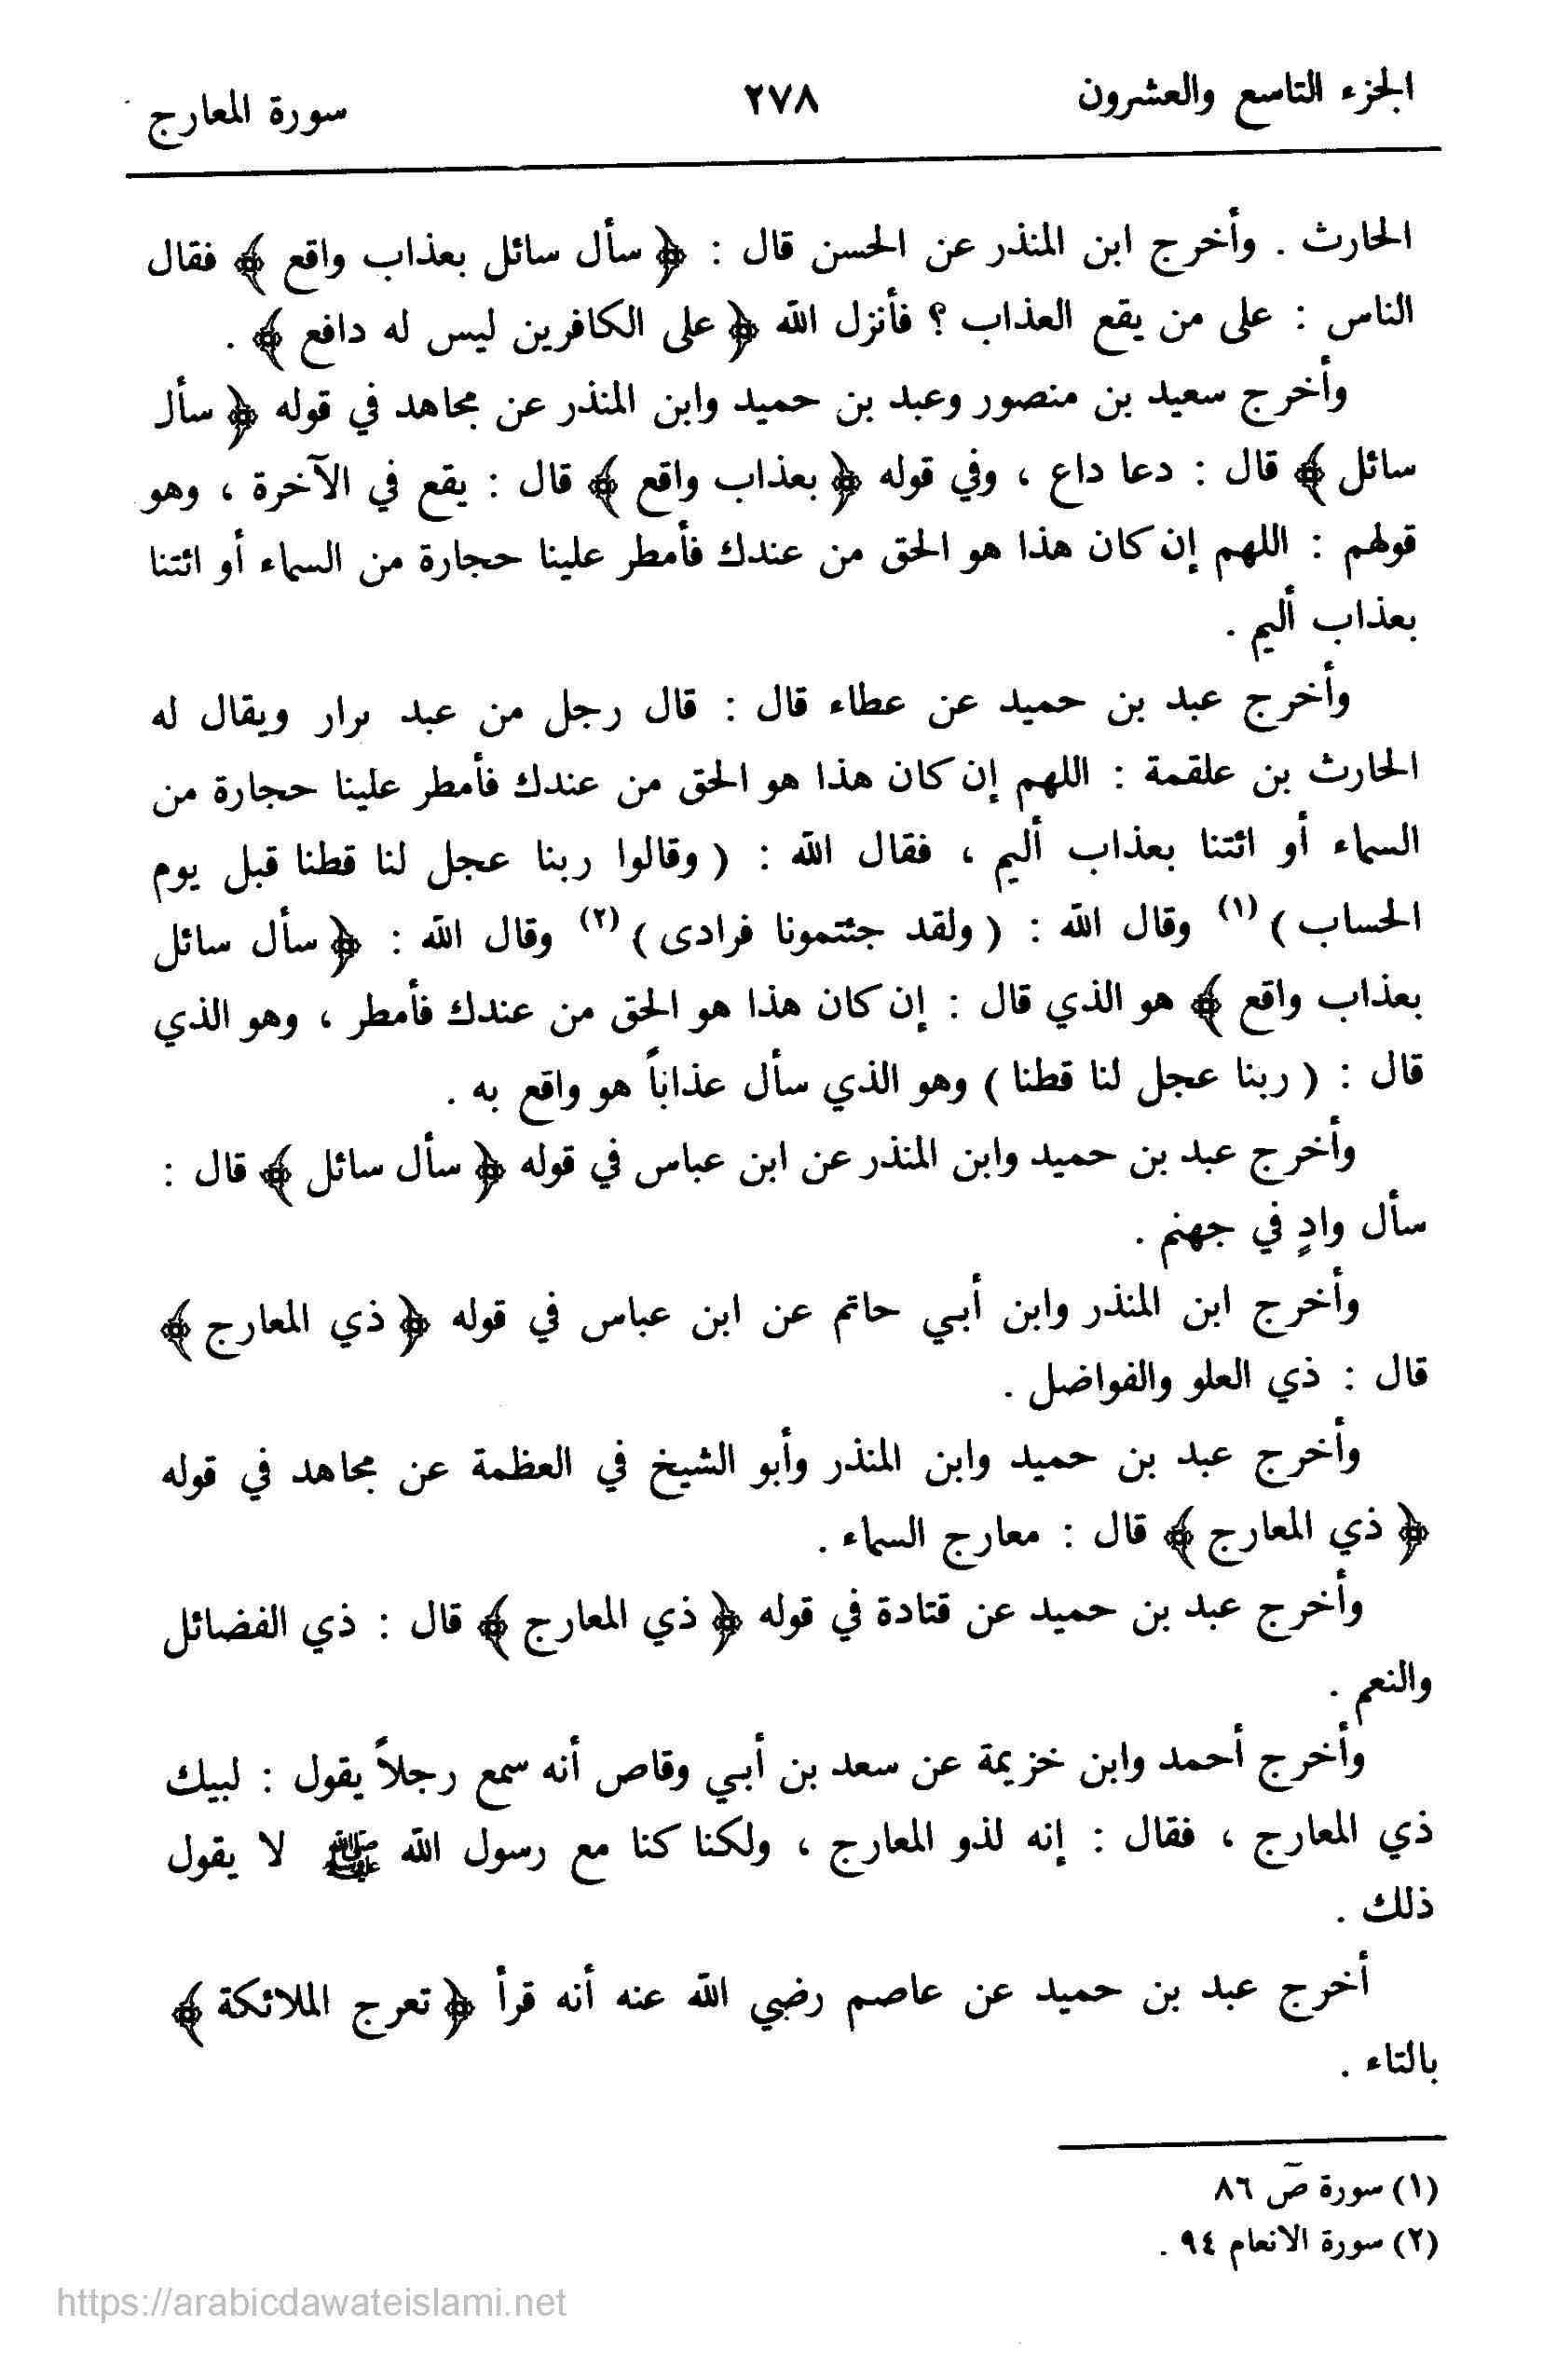 الجزء التاسع والعشرون ٢٧٨ سورة المعارج
الحارث . وأخرج ابن المنذر عن الحسن قال : ﴿ سأل سائل بعذاب واقع ﴾ فقال
الناس : على من يقع العذاب ؟ فأنزل الله ﴿ على الكافرين ليس له دافع ﴾ .
وأخرج سعيد بن منصور وعبد بن حميد وابن المنذر عن مجاهد في قوله ﴿ سأل
سائل ﴾ قال : دعا داع ، وفي قوله ﴿ بعذاب واقع ﴾ قال : يقع في الآخرة ، وهو
قولهم : اللهم إن كان هذا هو الحق من عندك فأمطر علينا حجارة من السماء أو ائتنا
بعذاب أليم .
وأخرج عبد بن حميد عن عطاء قال : قال رجل من عبد ويقال له
الحارث بن علقمة : اللهم إن كان هذا هو الحق من عندك فأمطر علينا حجارة من
السماء أو ائتنا بعذاب أليم ، فقال الله : ( وقالوا ربنا عجل لنا قطنا قبل يوم
الحساب ) (١) وقال الله : ( ولقد جئتمونا فرادى ) (٢) وقال الله : ﴿ سأل سائل
بعذاب واقع ﴾ هو الذي قال : إن كان هذا هو الحق من عندك فأمطر ، وهو الذي
قال : ( ربنا عجل لنا قطنا ) وهو الذي سأل عذاباً هو واقع به .
وأخرج عبد بن حميد وابن المنذر عن ابن عباس في قوله ﴿ سأل سائل ﴾ قال :
سأل وادٍ في جهنم .
وأخرج ابن المنذر وابن أبي حاتم عن ابن عباس في قوله ﴿ ذي المعارج ﴾
قال : ذي العلو والفواضل .
وأخرج عبد بن حميد وابن المنذر وأبو الشيخ في العظمة عن مجاهد في قوله
﴿ ذي المعارج ﴾ قال : معارج السماء .
وأخرج عبد بن حميد عن قتادة في قوله ﴿ ذي المعارج ﴾ قال : ذي الفضائل
والنعم .
وأخرج أحمد وابن خزيمة عن سعد بن أبي وقاص أنه سمع رجلاً يقول : لبيك
ذي المعارج ، فقال : إنه لذو المعارج ، ولكنا كنا مع رسول الله ﷺ لا يقول
ذلك .
أخرج عبد بن حميد عن عاصم رضي الله عنه أنه قرأ ﴿ تعرج الملائكة ﴾
بالتاء .
(١) سورة صۤ ٨٦
(٢) سورة الانعام ٩٤ .
https://arabicdawateislami.net